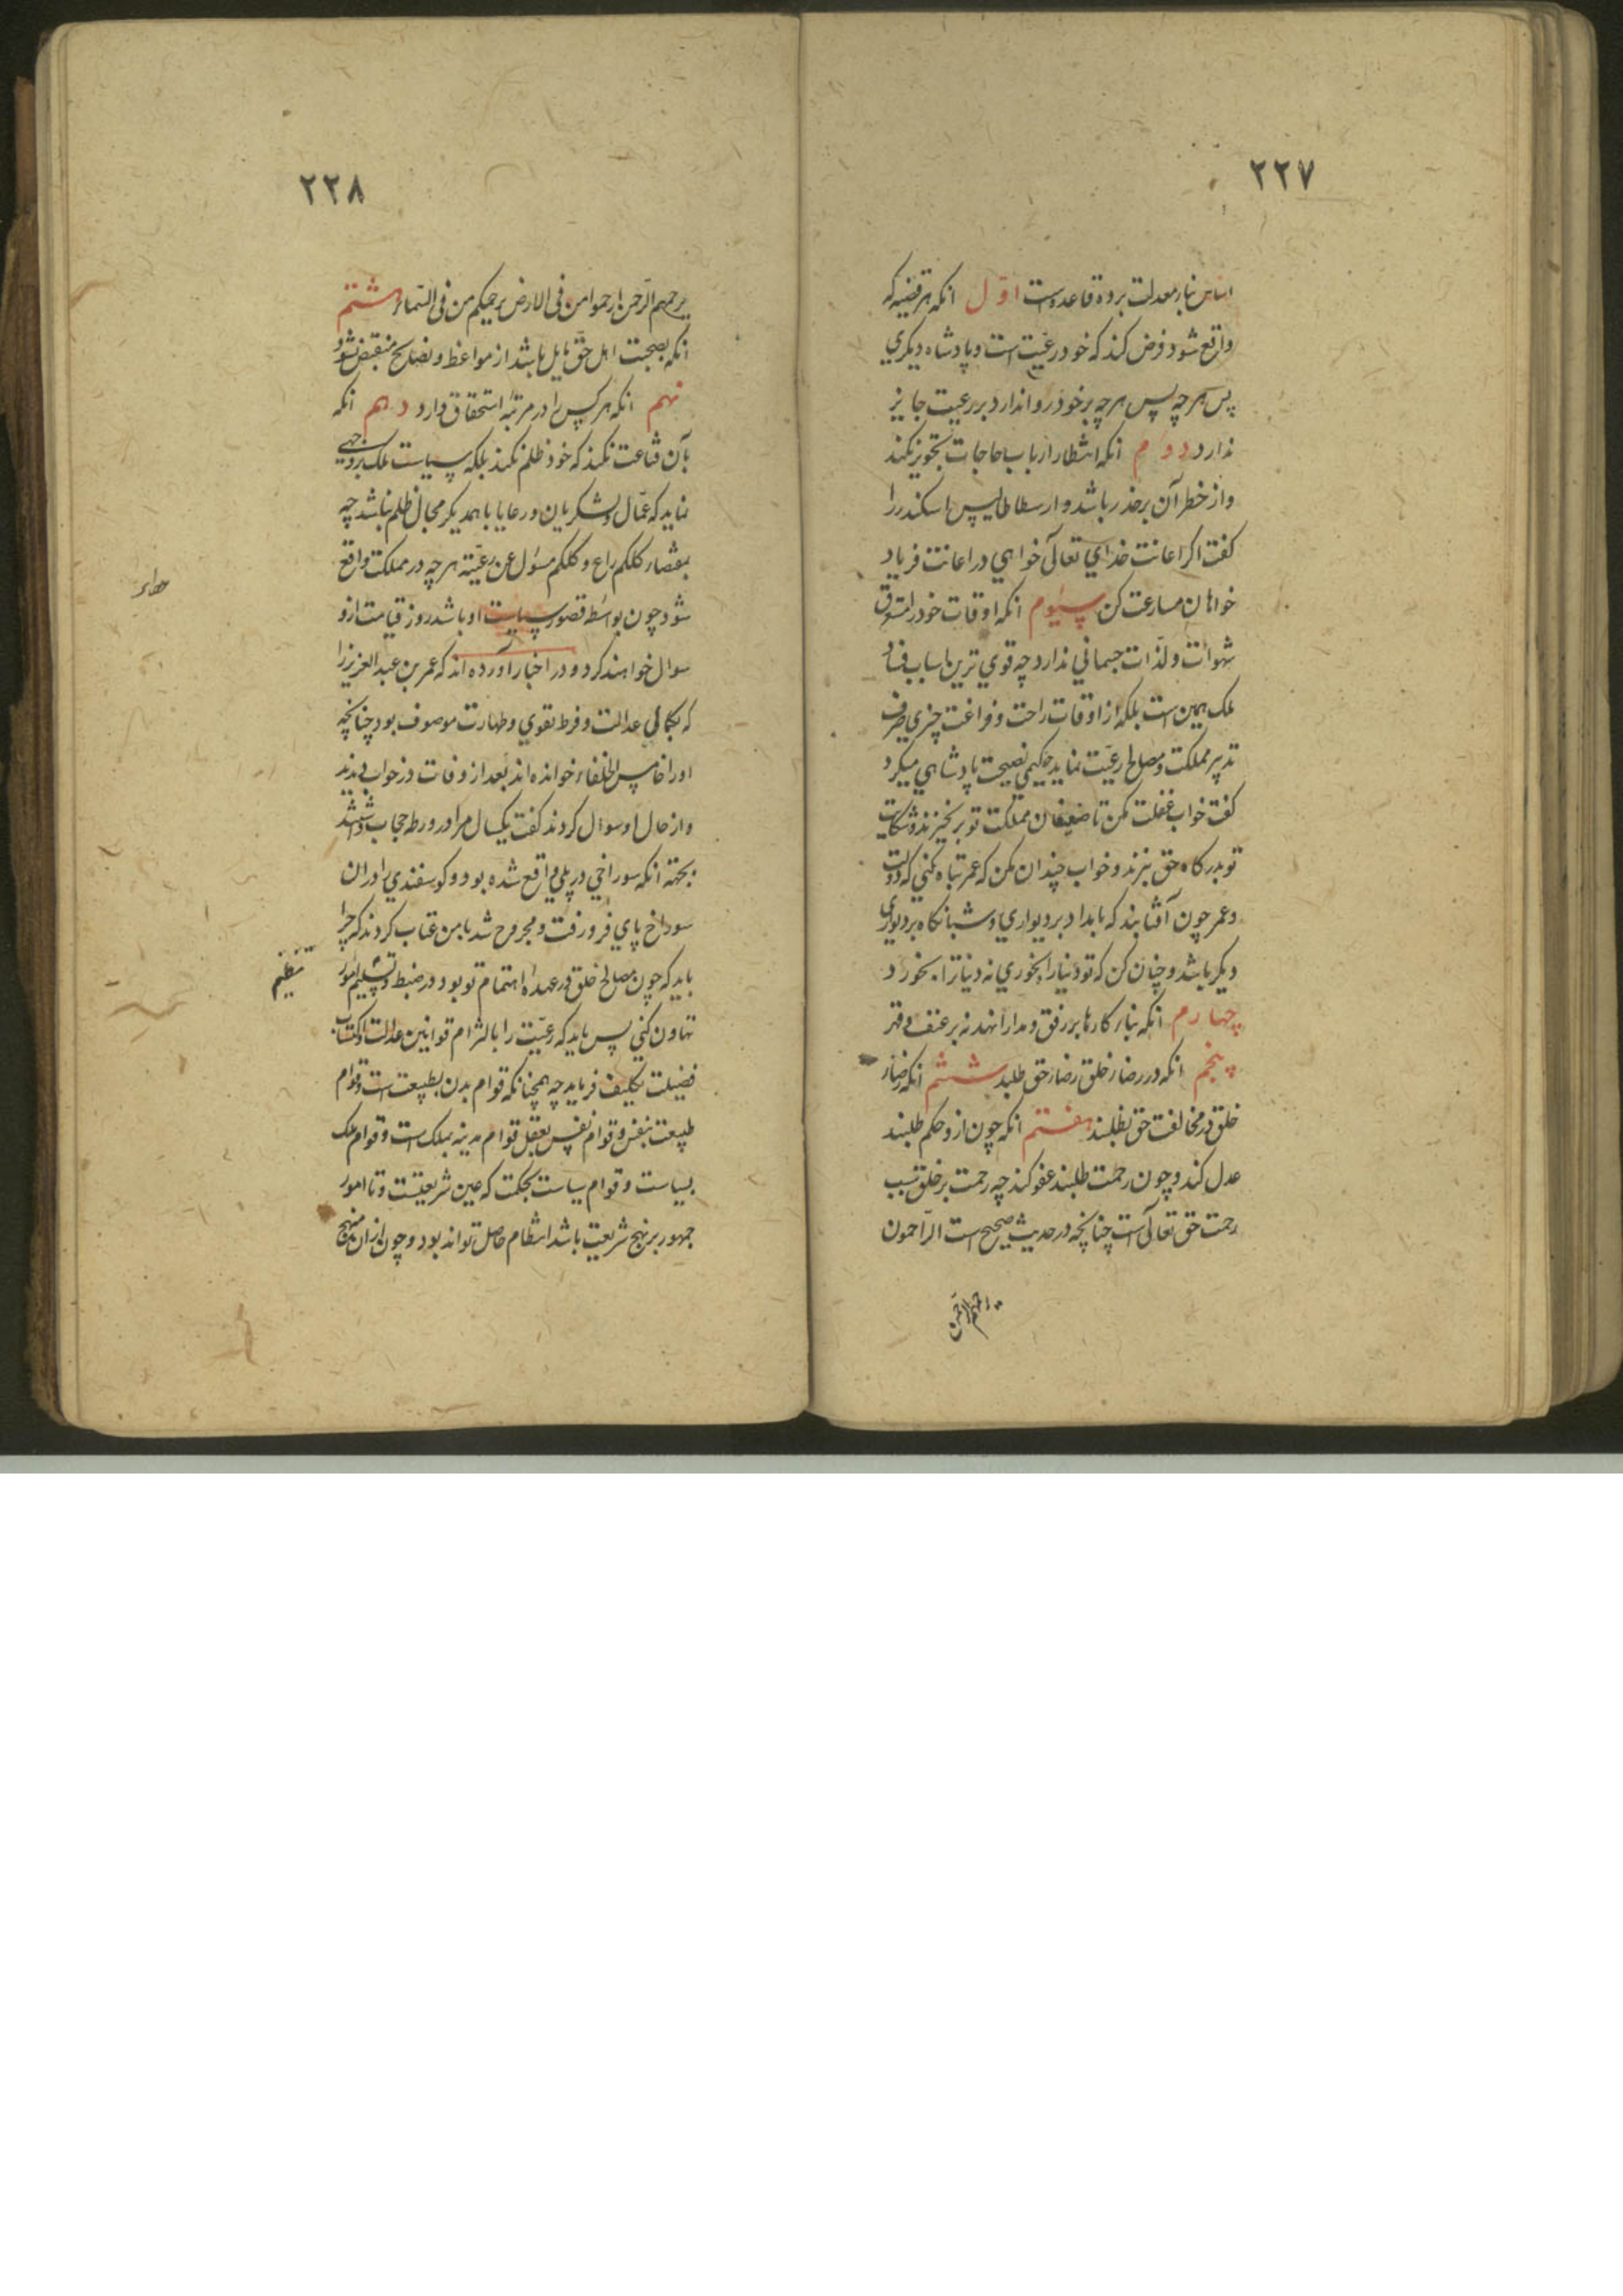 ۲۲۷
اساس بناء معدلت بر ده قاعده است اوّل انکه هر قضیه که
واقع شود فرض کند که خود رعیّت است و پادشاه دیکري
پس هر چه پس هر چه بر خود روا ندارد بر رعیت جایز
ندارد دوم انکه انتظار ارباب حاجات تجویز نکند
و از خطر آن بر حذر باشد و ارسطاطالیس اسکندر را
کفت اکر اعانت خداي تعالی خواهي در اعانت فریاد
خواهان مسارعت کن سیوم انکه اوقات خود را مستغرق
شهوات و لذّات جسماني ندارد چه قوي ترین اسباب فساد
ملک همین است بلکه از اوقات راحت و فراغت چیزي صرف
تدبیر مملکت و مصالح رعیّت نماید حکیمي نصیحت پادشاهي میکرد
کفت خواب غفلت مکن تا ضعیفان مملکت تو بر نخیزند و شکایت
تو بدرکاه حق نبرند و خواب چندان مکن که عمر تباه کني که دولت
و عمر چون آفتابند که بامداد بر دیواري و شبانکاه بر دیواري
دیکر باشد و چنان کن که تو دنیا را بخوري نه دنیا ترا بخورد
چهارم انکه بناء کارها بر رفق و مدارا نهد نه بر عنف و قهر
پنجم انکه در رضاء خلق رضاء حق طلبد ششم انکه رضاء
خلق در مخالفت حق نطلبد هفتم انکه چون ازو حکم طلبند
عدل کند و چون رحمت طلبند عفو کند چه رحمت بر خلق سبب
رحمت حق تعالی است چنانچه در حدیث صحیح است الرّاحمون
یرحمهم الرّحمن
۲۲۸
یرحمهم الرّحمن ارحموا من في الارض یرحمکم من في السّماء هشتم
انکه بصحبت اهل حقّ مایل باشد از مواعظ و نصایح منقبض نشود
نهم انکه هر کس را در مرتبه استحقاق دارد دهم انکه
بآن قناعت نکند که خود ظلم نکند بلکه سیاست ملک بر وجهي
نماید که عمّال و لشکریان و رعایا با همدیکر مجال ظلم نباشد چه
بمقتضاء کلکم راع و کلکم مسؤل عن رعیّته هر چه در مملکت واقع
شود چون بواسطه قصور سیاست او باشد روز قیامت ازو
سوال خواهند کرد و در اخبار آورده اند که عمر بن عبد العزیز را
که بکمال عدالت و فرط تقوي و طهارت موصوف بود چنانچه
اورا خامس الخلفاء خوانده اند بعد از وفات در خواب دیدند
و از حال او سوال کردند کفت یکسال مرا در ورطه حجاب داشتند
بجهته انکه سوراخي در پلي واقع شده بود و کوسفندي را در ان
سوراخ پاي فرو رفت و مجروح شد با من عتاب کردند که چرا
باید که چون مصالح خلق در عهده اهتمام تو بود در ضبط و تسلیم امور
تنظیم
تهاون کني پس باید که رعیّت را بالتزام قوانین عدالت و اکتساب
فضیلت تکلیف فرماید چه همچنانکه قوام بدن بطبیعت است و قوام
طبیعت بنفس و قوام نفس بعقل قوام مدینه بملک است و قوام ملک
بسیاست و قوام سیاست بحکمت که عین شریعتست و تا امور
جمهور بر نهج شریعت باشد انتظام حاصل تواند بود و چون از ان منهج